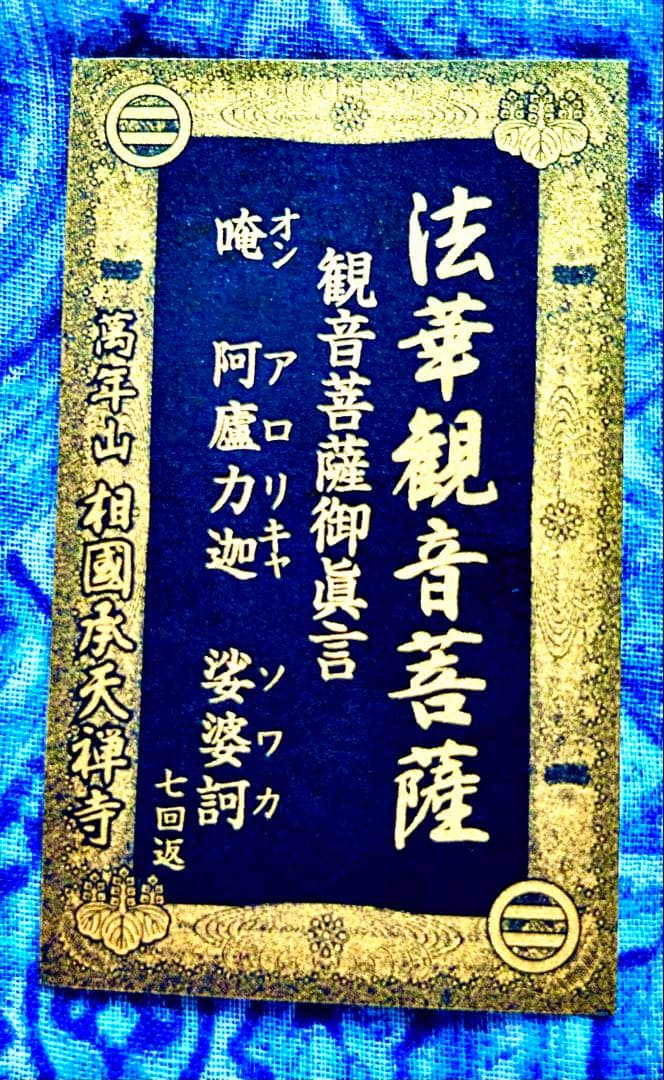 法華観音菩薩
観音菩薩御眞言
オン アロリキャ ソワカ
唵 阿盧力迦 娑婆訶
七回返
萬年山 相國承天禅寺